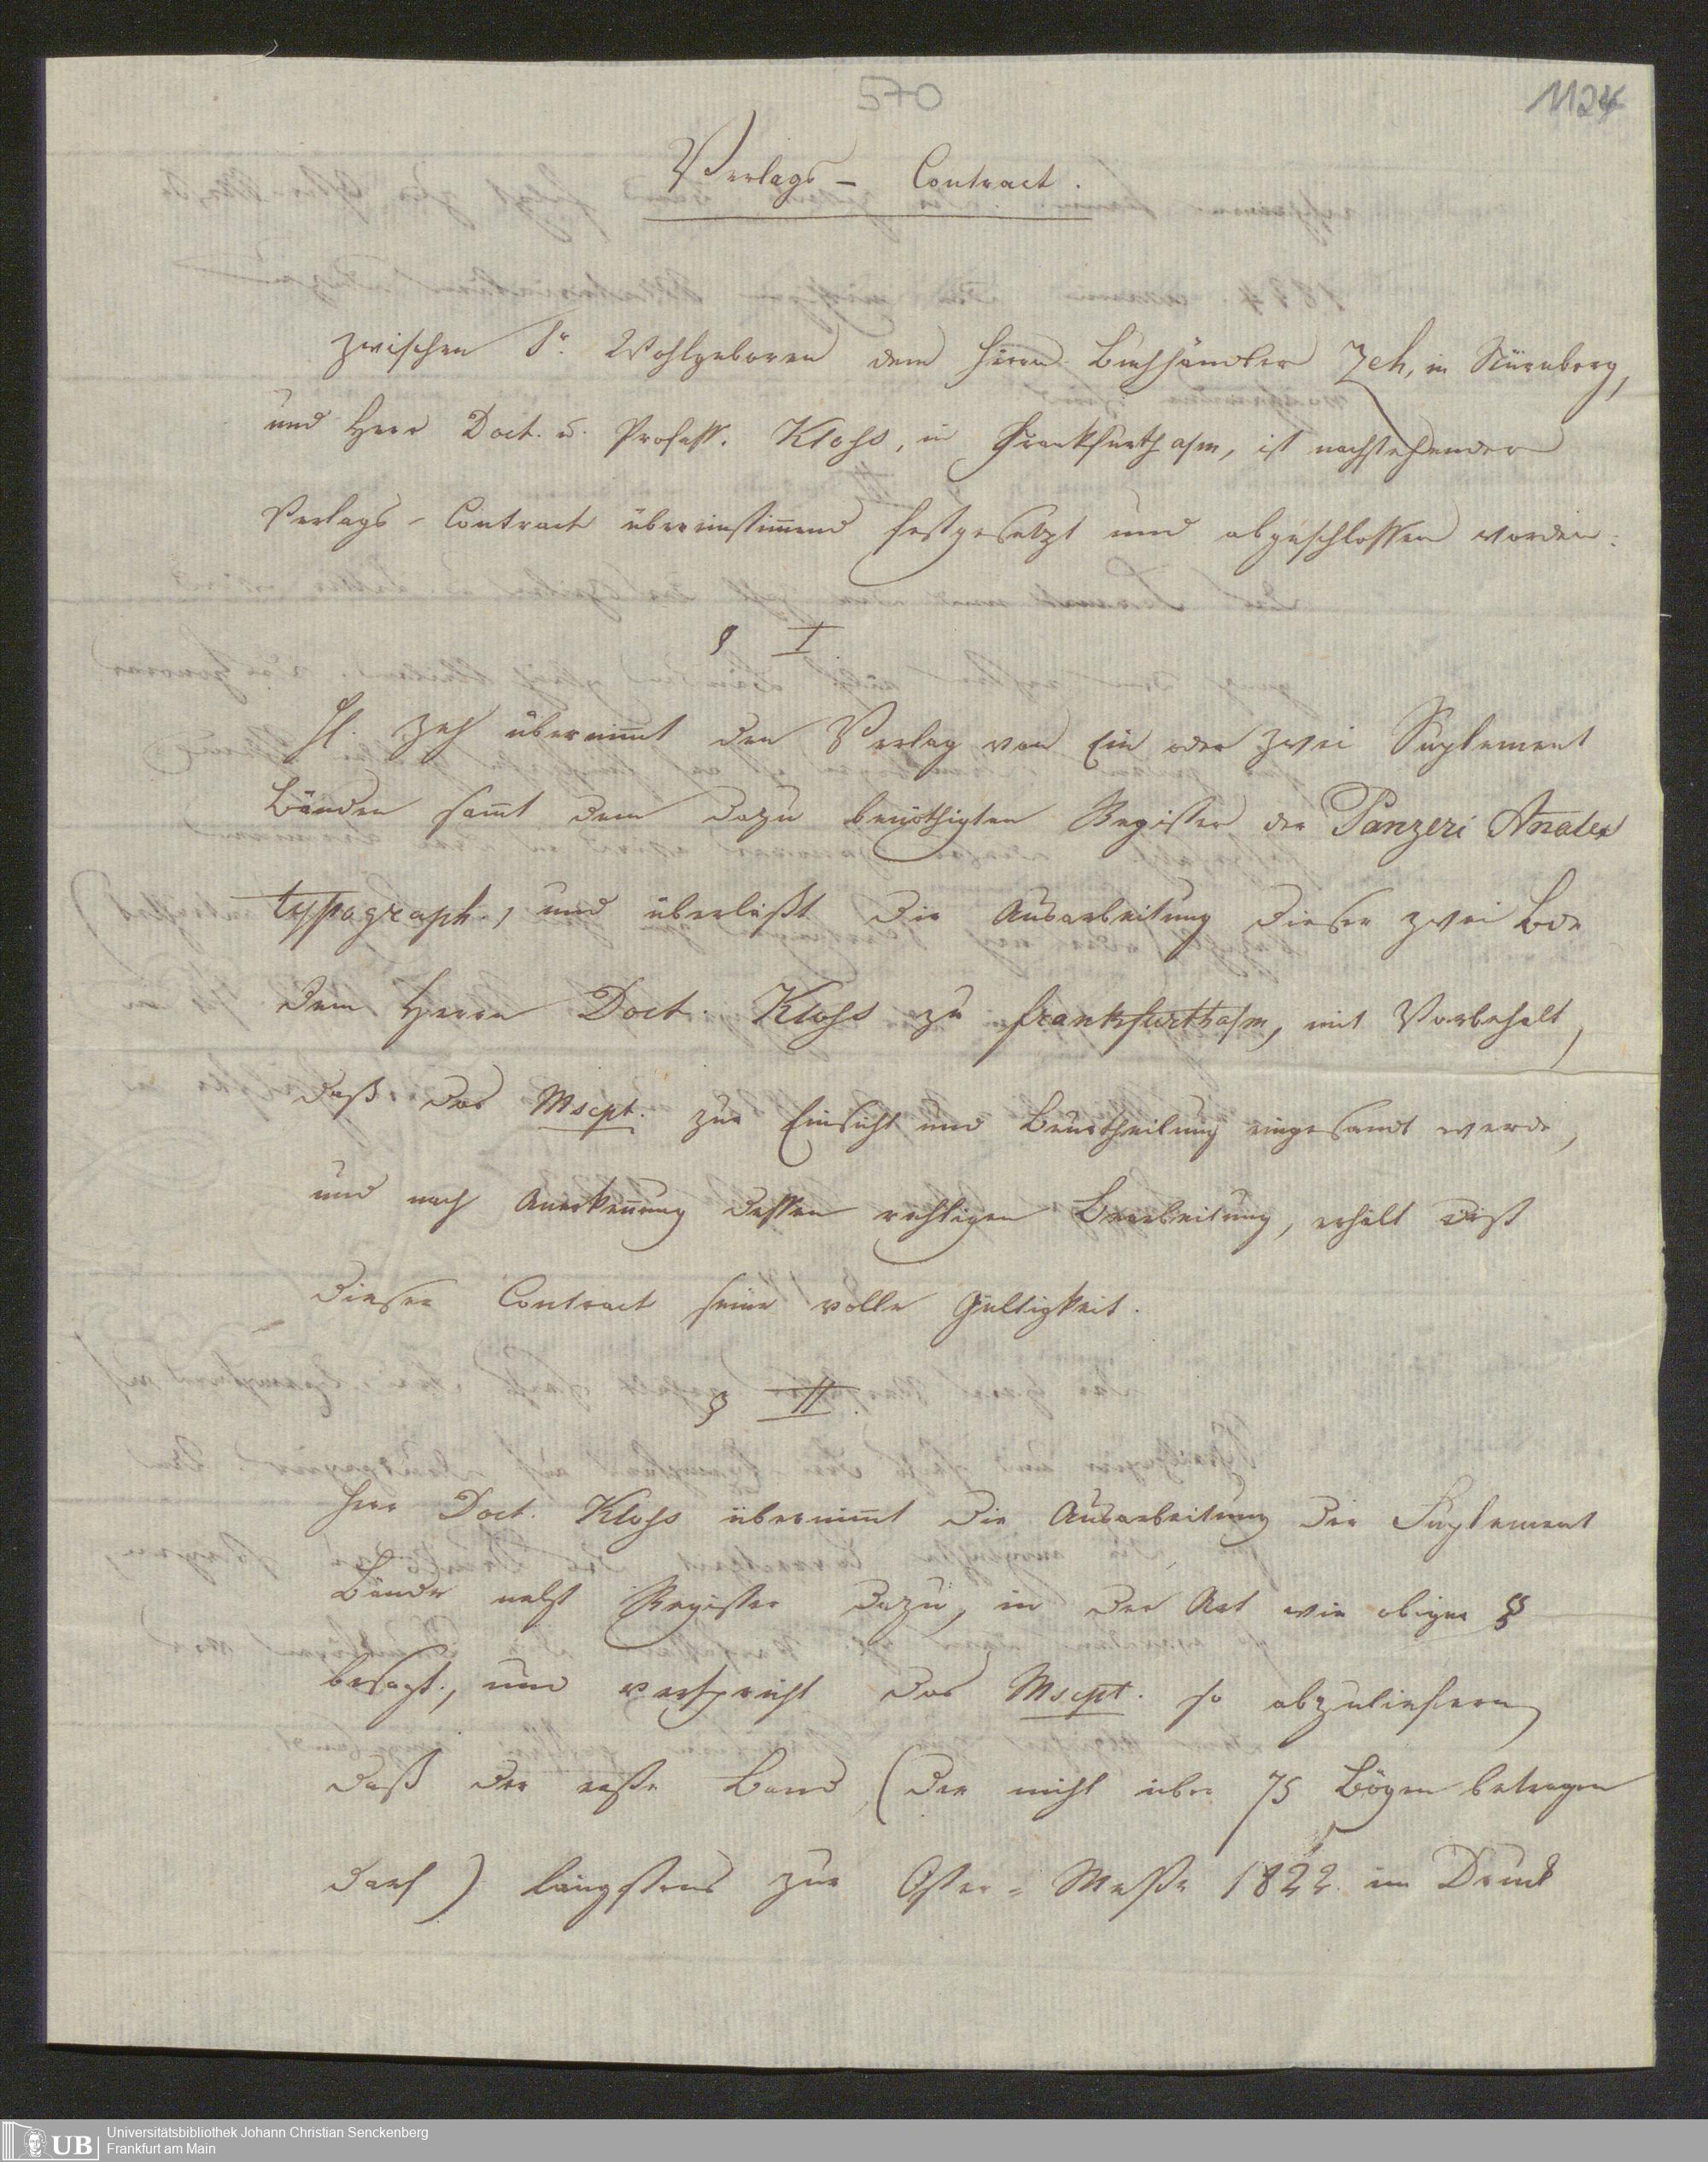 570
1124
Verlags - Contract.
zwischen Sr. Wohlgeboren dem Herrn Buchhändler Zeh, in Nürnberg,
und Herr Doct. u. Profess. Kloss, in Frankfurth a/m, ist nachstehender
Verlags-Contract übereinstim̅end festgesetzt und abgeschlossen worden:
§ I
H. Zeh übernim̅t den Verlag von Ein oder zwei Suplement
Bänden sam̅t dem dazu benöthigten Register der Panzeri Anales
typograph., und überläßt die Ausarbeitung dieser zwei Bde
dem Herrn Doct. Kloss zu Frankfurth a/m, mit Vorbehalt,
daß das Mscpt. zur Einsicht und Beurtheilung eingesandt werde,
und nach Anerken̅ung dessen richtigen Bearbeitung, erhält erst
dieser Contract seine volle Gültigkeit.
§ II.
Herr Doct. Kloss übernim̅t die Ausarbeitung der Suplement
Bände nebst Register dazu, in der Art wie obiger §
besagt, und verspricht das Mscpt. so abzuliefern,
daß der erste Band (der nicht über 75 Bögen betragen
darf) längstens zur Oster-Messe 1822 im Druck
UB
Universitätsbibliothek Johann Christian Senckenberg
Frankfurt am Main